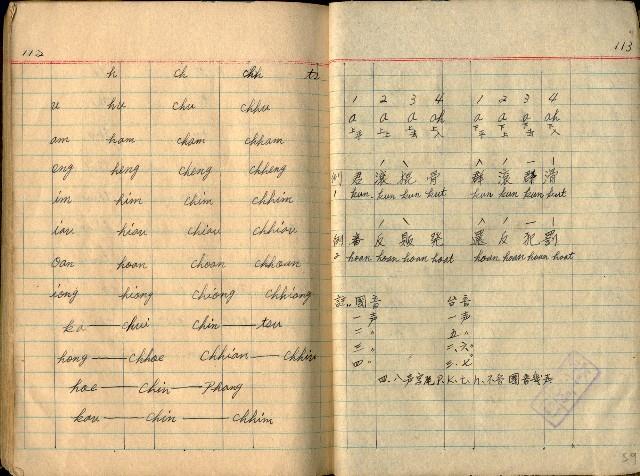 112
h ch chh ts
u hu chu chhu
am ham cham chham
eng heng cheng chheng
im him chim chhim
iau hiau chiau chhiau
oan hoan choan chhoan
iong hiong chiong chhiong
ka — chui chin — tsu
hong — chhoe chhian — chhiu
hoe — chin — phang
kau — chin — chhim
113
1 2 3 4 1 2 3 4
a a a ah a a a ah
上平 上上 上去 上入 下平 下上 下去 下入
例1 君 滾 棍 骨 群 滾 郡 滑
kun kun kun kut kun kun kun kut
例2 番 反 販 発 還 反 犯 罰
hoan hoan hoan hoat hoan hoan hoan hoat
註.. 國音 台音
一声 一声
二〃 五〃
三〃 二、六〃
四〃 三、七〃
四、八声 尾 P. K. t. h. 國音
59